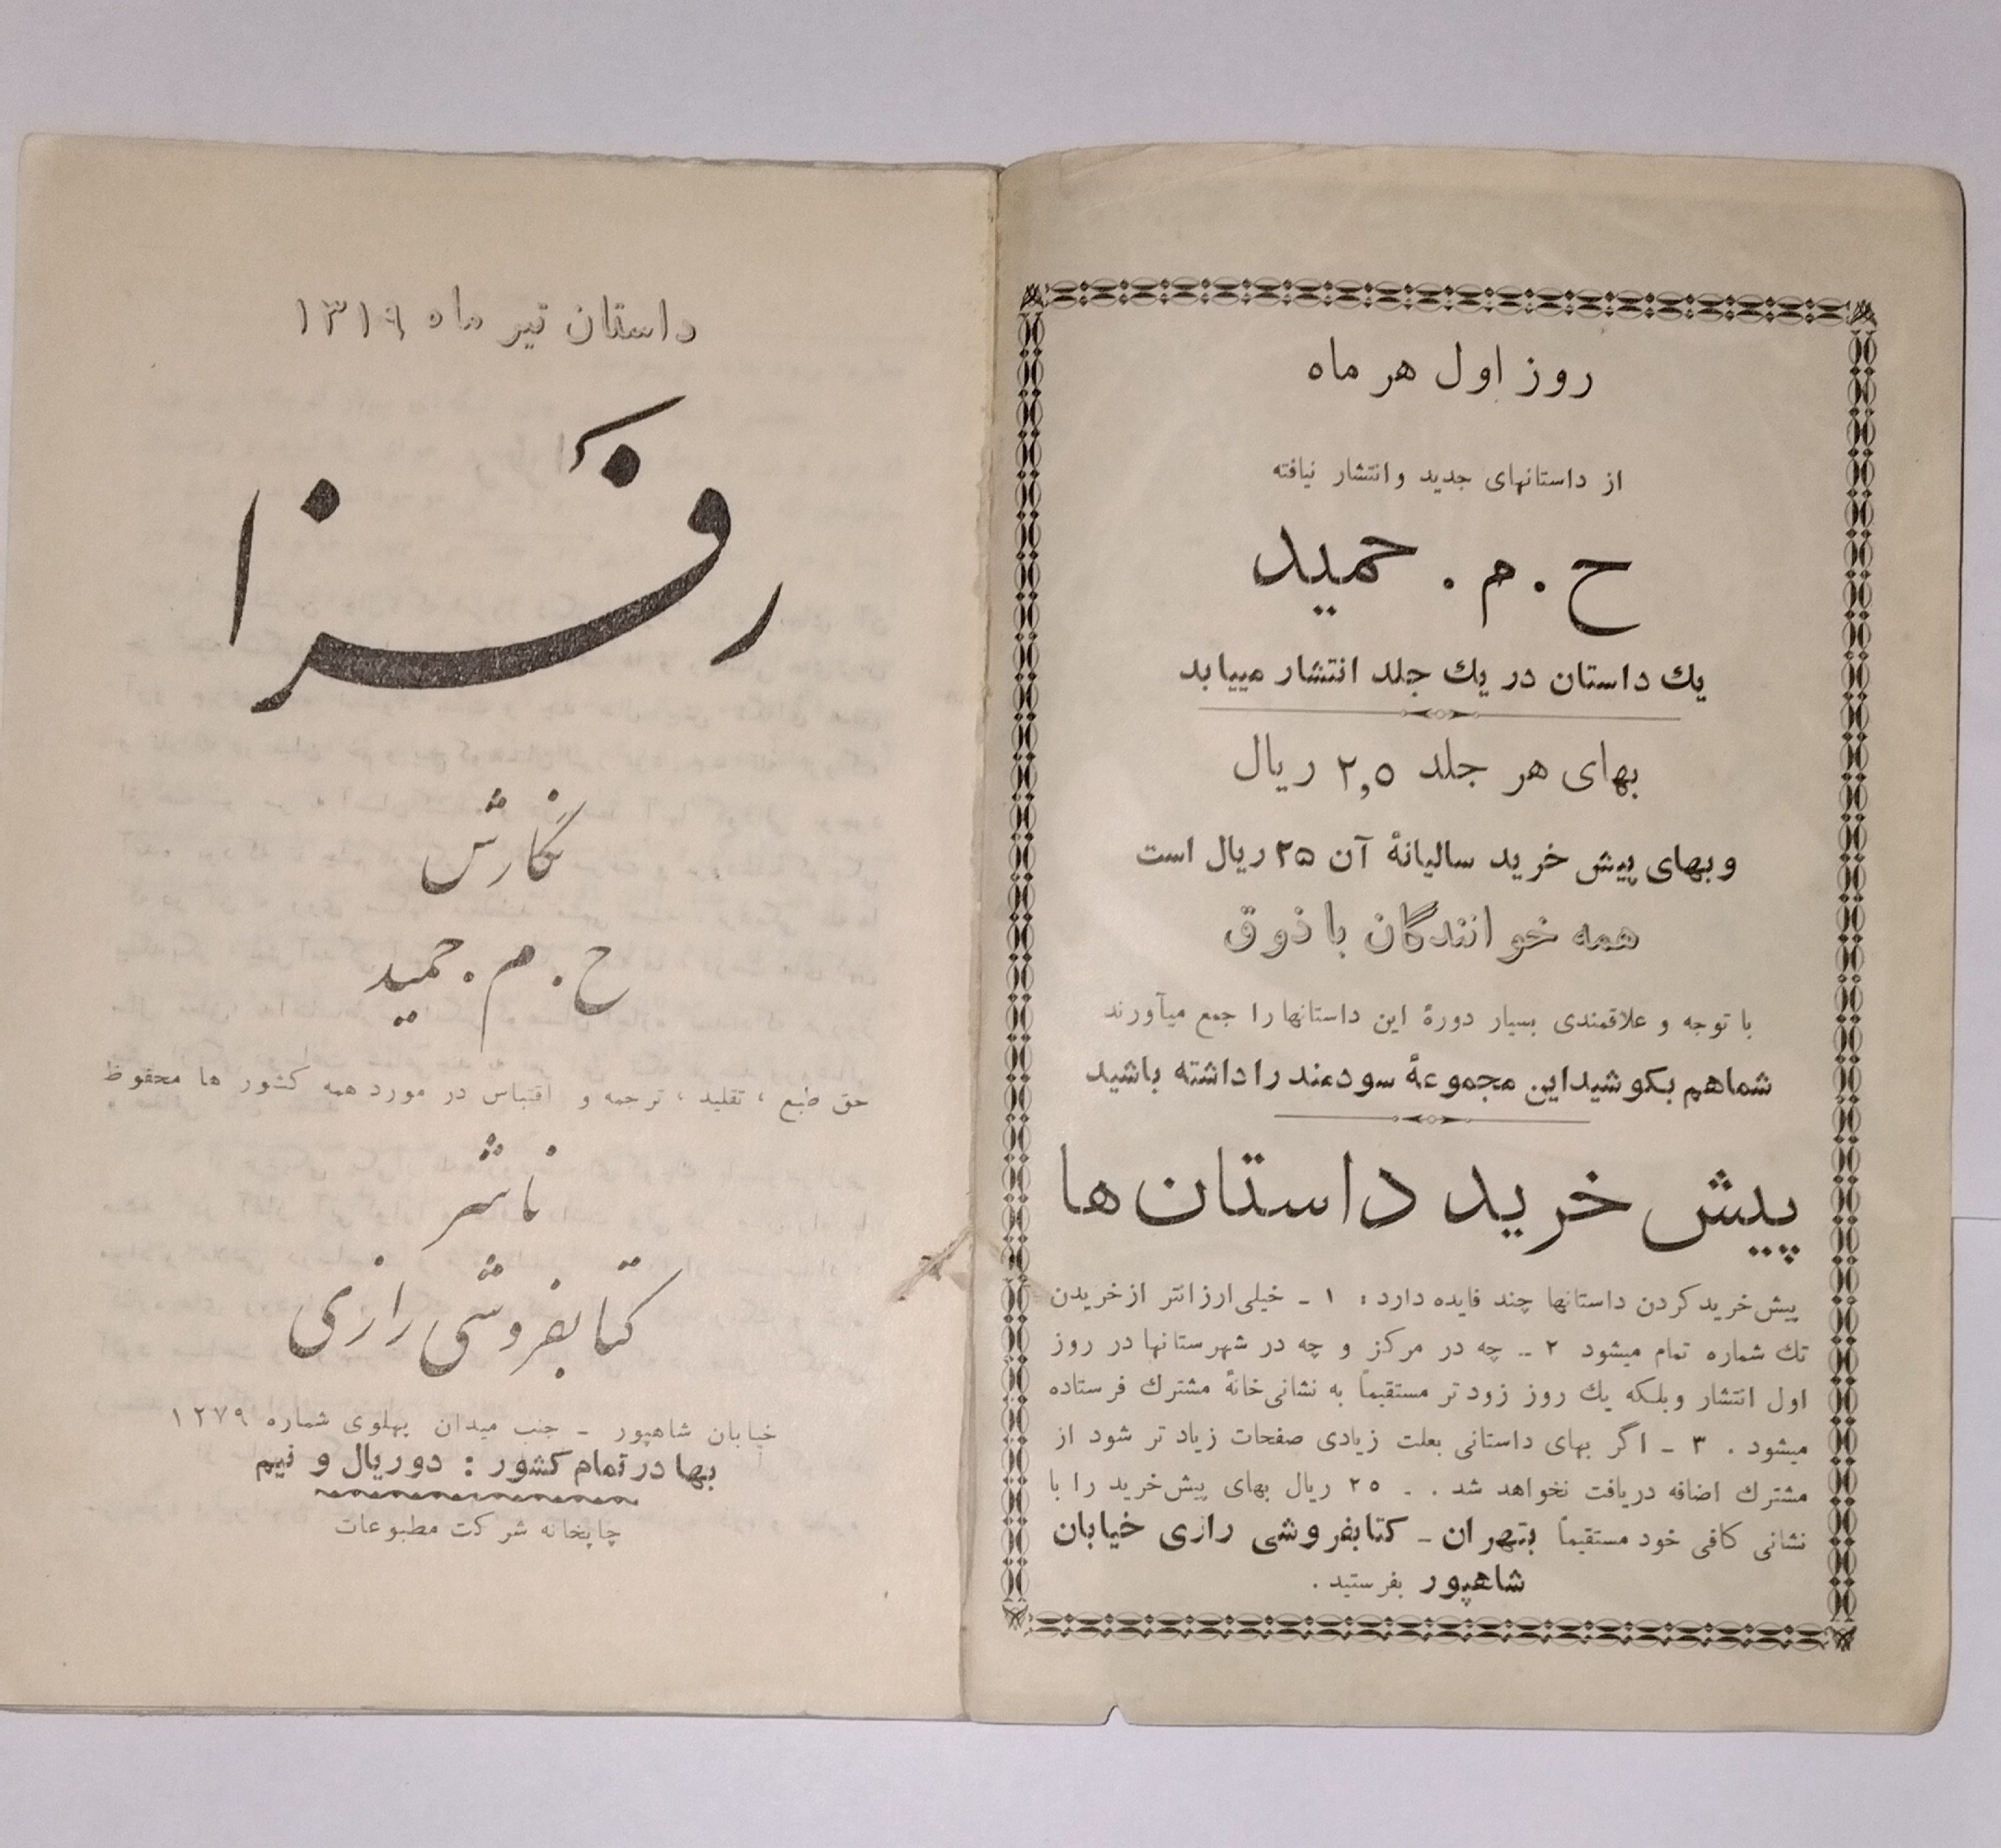 روز اول هر ماه
از داستانهای جدید وانتشار نیافته
ح . م . حمید
یك داستان در یك جلد انتشار مییابد
بهای هر جلد ۲٫۵ ریال
وبهای پیش خرید سالیانهٔ آن ۲۵ ریال است
همه خوانندگان با ذوق
با توجه و علاقمندی بسیار دورهٔ این داستانها را جمع میآورند
شما هم بکوشید این مجموعهٔ سودمند را داشته باشید
پیش خرید داستان ها
پیش‌خرید کردن داستانها چند فایده دارد : ۱ ـ خیلی ارزانتر از خریدن
تك شماره تمام میشود ۲ ـ چه در مرکز و چه در شهرستانها در روز
اول انتشار وبلکه یك روز زود تر مستقیماً به نشانی خانهٔ مشترك فرستاده
میشود . ۳ ـ اگر بهای داستانی بعلت زیادی صفحات زیاد تر شود از
مشترك اضافه دریافت نخواهد شد . ـ ۲۵ ریال بهای پیش‌خرید را با
نشانی کافی خود مستقیماً بتهران ـ کتابفروشی رازی خیابان
شاهپور بفرستید .
داستان تیر ماه ۱۳۱۹
نگارش
ح . م . حمید
حق طبع ، تقلید ، ترجمه و اقتباس در مورد همه کشور ها محفوظ
ناشر
کتابفروشی رازی
خیابان شاهپور ـ جنب میدان پهلوی شماره ۱۲۷۹
بها در تمام کشور : دو ریال و نیم
چاپخانه شرکت مطبوعات